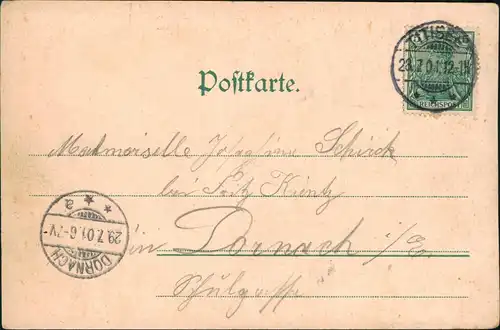 Postkarte.
TITISEE
28.7.01.12-1N
REICHSPOST
Mademoiselle Josephine Schirck
bei Fritz Kientz
in Dornach i/E
Schulgasse
a
29.7.01.6-7V.
DORNACH